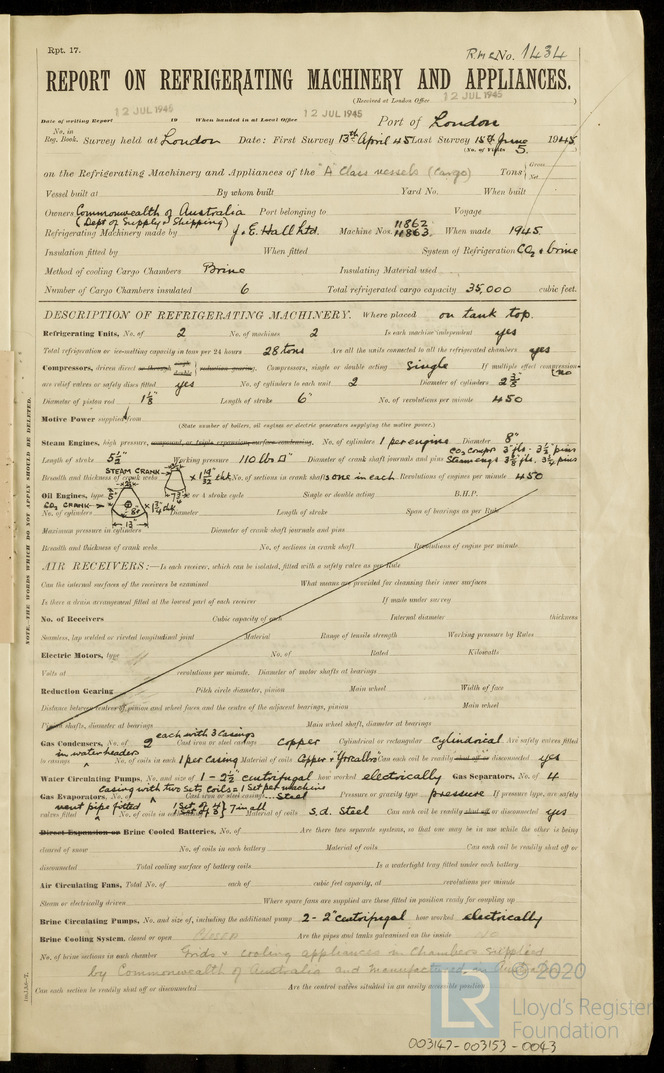 Rpt. 17.
RMC No. 1434
REPORT ON REFRIGERATING MACHINERY AND APPLIANCES.
(Received at London Office 12 JUL 1945 )
Date of writing Report 12 JUL 1945 19 When handed in at Local Office 12 JUL 1945 Port of London
No. in Reg. Book. Survey held at London Date: First Survey 13th April 45 Last Survey 15th June 1945
(No. of Visits 5.
on the Refrigerating Machinery and Appliances of the "A" Class vessels (Cargo) Tons Gross Net
Vessel built at By whom built Yard No. When built
Owners Commonwealth of Australia Port belonging to Voyage
(Dept of Supply & Shipping)
Refrigerating Machinery made by J. E. Hall Ltd. Machine Nos. 11862 11863 When made 1945
Insulation fitted by When fitted System of Refrigeration CO2 & brine
Method of cooling Cargo Chambers Brine Insulating Material used
Number of Cargo Chambers insulated 6 Total refrigerated cargo capacity 35,000 cubic feet.
DESCRIPTION OF REFRIGERATING MACHINERY. Where placed on tank top.
Refrigerating Units, No. of 2 No. of machines 2 Is each machine independent yes
Total refrigeration or ice-melting capacity in tons per 24 hours 28 tons Are all the units connected to all the refrigerated chambers yes
Compressors, driven direct or through single double reduction gearing. Compressors, single or double acting Single If multiple effect compression (no
are relief valves or safety discs fitted yes No. of cylinders to each unit 2 Diameter of cylinders 2 3/8
Diameter of piston rod 1 1/8 Length of stroke 6" No. of revolutions per minute 450
Motive Power supplied from
(State number of boilers, oil engines or electric generators supplying the motive power.)
Steam Engines, high pressure, compound, or triple expansion, surface condensing. No. of cylinders 1 per engine Diameter 8"
Length of stroke 5 1/2" Working pressure 110 lbs □" Diameter of crank shaft journals and pins CO2 compr 3" jls. 3 1/2" pins Steam engs 3 1/8" jls 3 1/4 pins
Breadth and thickness of crank webs STEAM CRANK No. of sections in crank shaft one in each Revolutions of engines per minute 450
Oil Engines, type 2 or 4 stroke cycle Single or double acting B.H.P.
CO2 CRANK
No. of cylinders Diameter Length of stroke Span of bearings as per Rule
13"
Maximum pressure in cylinders Diameter of crank shaft journals and pins
Breadth and thickness of crank webs No. of sections in crank shaft Revolutions of engine per minute
AIR RECEIVERS:—Is each receiver, which can be isolated, fitted with a safety valve as per Rule
Can the internal surfaces of the receivers be examined What means are provided for cleansing their inner surfaces
Is there a drain arrangement fitted at the lowest part of each receiver If made under survey
No. of Receivers Cubic capacity of each Internal diameter thickness
Seamless, lap welded or riveted longitudinal joint Material Range of tensile strength Working pressure by Rules
Electric Motors, type No. of Rated Kilowatts
Volts at revolutions per minute. Diameter of motor shafts at bearings
Reduction Gearing Pitch circle diameter, pinion Main wheel Width of face
Distance between centres of pinion and wheel faces and the centre of the adjacent bearings, pinion Main wheel
Pinion shafts, diameter at bearings Main wheel shaft, diameter at bearings
Gas Condensers, No. of 2 each with 3 casings Cast iron or steel casings copper Cylindrical or rectangular cylindrical Are safety valves fitted
in water headers
to casings No. of coils in each 1 per casing Material of coils Copper & "Yorcalbro" Can each coil be readily shut off or disconnected yes
Water Circulating Pumps, No. and size of 1 - 2 1/2" centrifugal how worked electrically Gas Separators, No. of 4
casing with two sets coils = 1 set per machine
Gas Evaporators, No. of 1 Cast iron or steel casings Steel Pressure or gravity type pressure If pressure type, are safety
vent pipe fitted 1 Set of 4 1 Set of 3 } 7 in all
valves fitted No. of coils in each casing Material of coils S.d. Steel Can each coil be readily shut off or disconnected yes
Direct Expansion or Brine Cooled Batteries, No. of Are there two separate systems, so that one may be in use while the other is being
cleared of snow No. of coils in each battery Material of coils Can each coil be readily shut off or
disconnected Total cooling surface of battery coils Is a watertight tray fitted under each battery
Air Circulating Fans, Total No. of each of cubic feet capacity, at revolutions per minute
Steam or electrically driven Where spare fans are supplied are these fitted in position ready for coupling up
Brine Circulating Pumps, No. and size of, including the additional pump 2 - 2" centrifugal how worked electrically
Brine Cooling System, closed or open Closed Are the pipes and tanks galvanised on the inside
No. of brine sections in each chamber Grids & cooling appliances in Chambers supplied
by Commonwealth of Australia and manufactured in Australia
Can each section be readily shut off or disconnected Are the control valves situated in an easily accessible position
NOTE.—THE WORDS WHICH DO NOT APPLY SHOULD BE DELETED.
© 2020
LR
Lloyd's Register
Foundation
003147-003153-0043